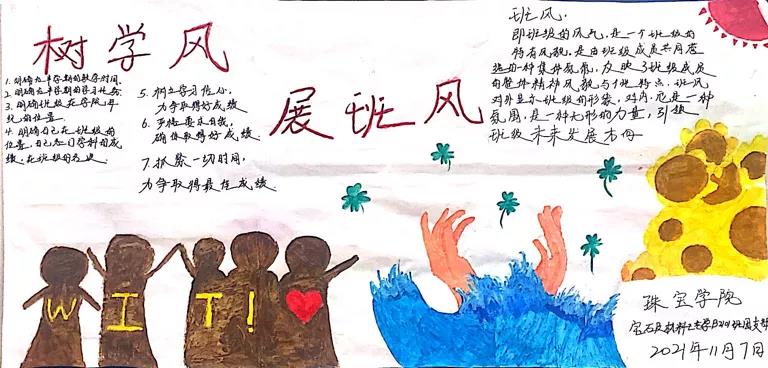 树学风
1. 明确九半学期的教学时间.
2. 明确九半学期的学习任务.
3. 明确班级在学院年
级的位置.
4. 明确自己在班级的
位置, 自己各门学科的成
绩, 在班级的
5. 树立学习信心,
力争取得好成绩
6. 严格要求自我,
确保取得好成绩.
7. 抓紧一切时间,
力争取得最佳成绩.
展班风
班风.
即班级的风气, 是一个班级的
特有风貌, 是由班级成员共同营
造的一种集体氛围, 反映了班级成员
的整体精神风貌与个性特点. 班风
对外显示班级的形象, 对内, 它是一种
氛围, 是一种无形的力量, 引领
班级未来发展方向
WIT!
珠宝学院
宝石及材料工艺学
2021年11月7日